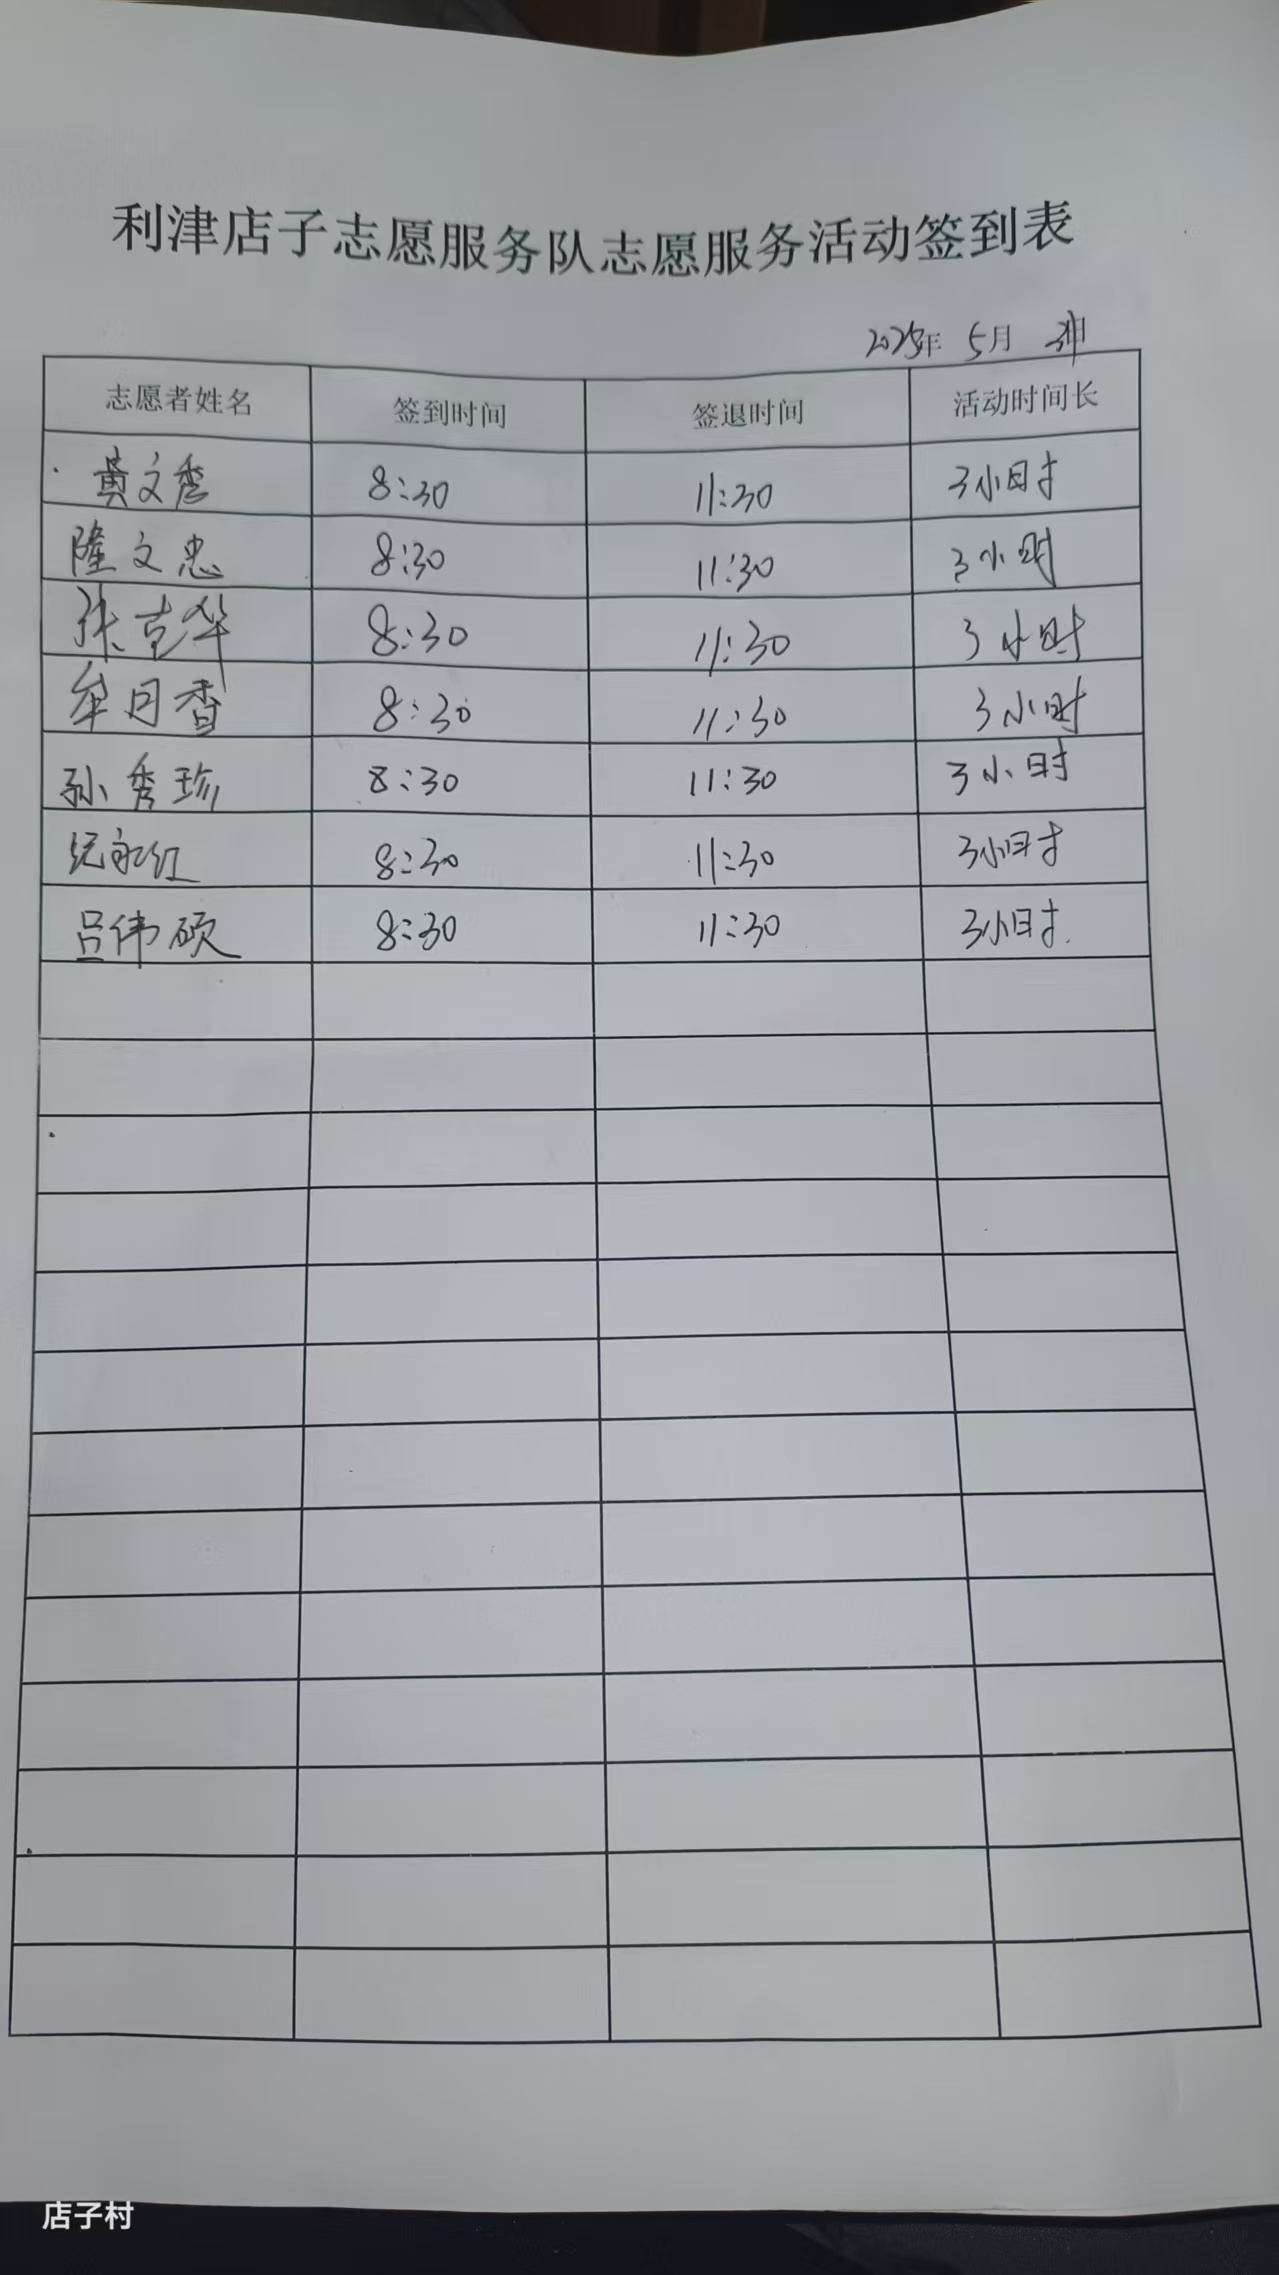 利津店子志愿服务队志愿服务活动签到表
2025年 5月 日
志愿者姓名 签到时间 签退时间 活动时间长
黄文秀 8:30 11:30 3小时
隆文忠 8:30 11:30 3小时
张克华 8:30 11:30 3小时
牟月香 8:30 11:30 3小时
孙秀珍 8:30 11:30 3小时
纪永红 8:30 11:30 3小时
吕伟硕 8:30 11:30 3小时
店子村